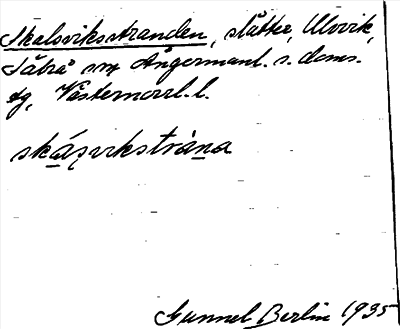 Skalsviksstranden, slåtter, Ulvvik,
Säbrå sn Ångermanl. s. doms.
tg, Västernorrl. l.
skáṣvikstrána
Gunnel Berlin 1935